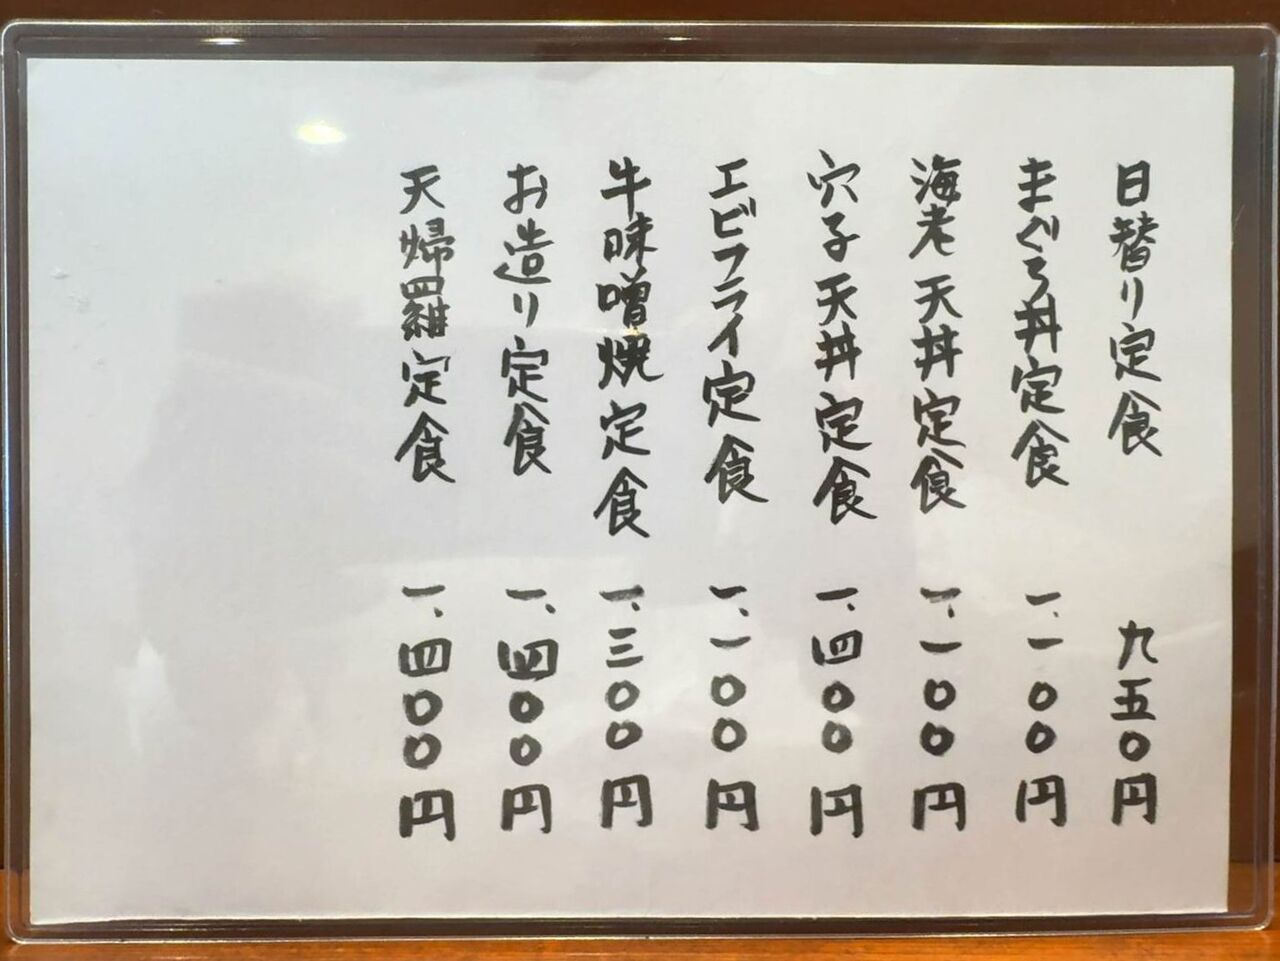 日替り定食 九五〇円
まぐろ丼定食 一、一〇〇円
海老天丼定食 一、一〇〇円
穴子天丼定食 一、四〇〇円
エビフライ定食 一、一〇〇円
牛味噌焼定食 一、三〇〇円
お造り定食 一、四〇〇円
天婦羅定食 一、四〇〇円